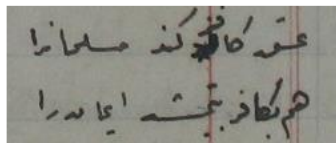 عشق کافر کند مسلمانرا
هم بکافر ببخشد ایمانرا